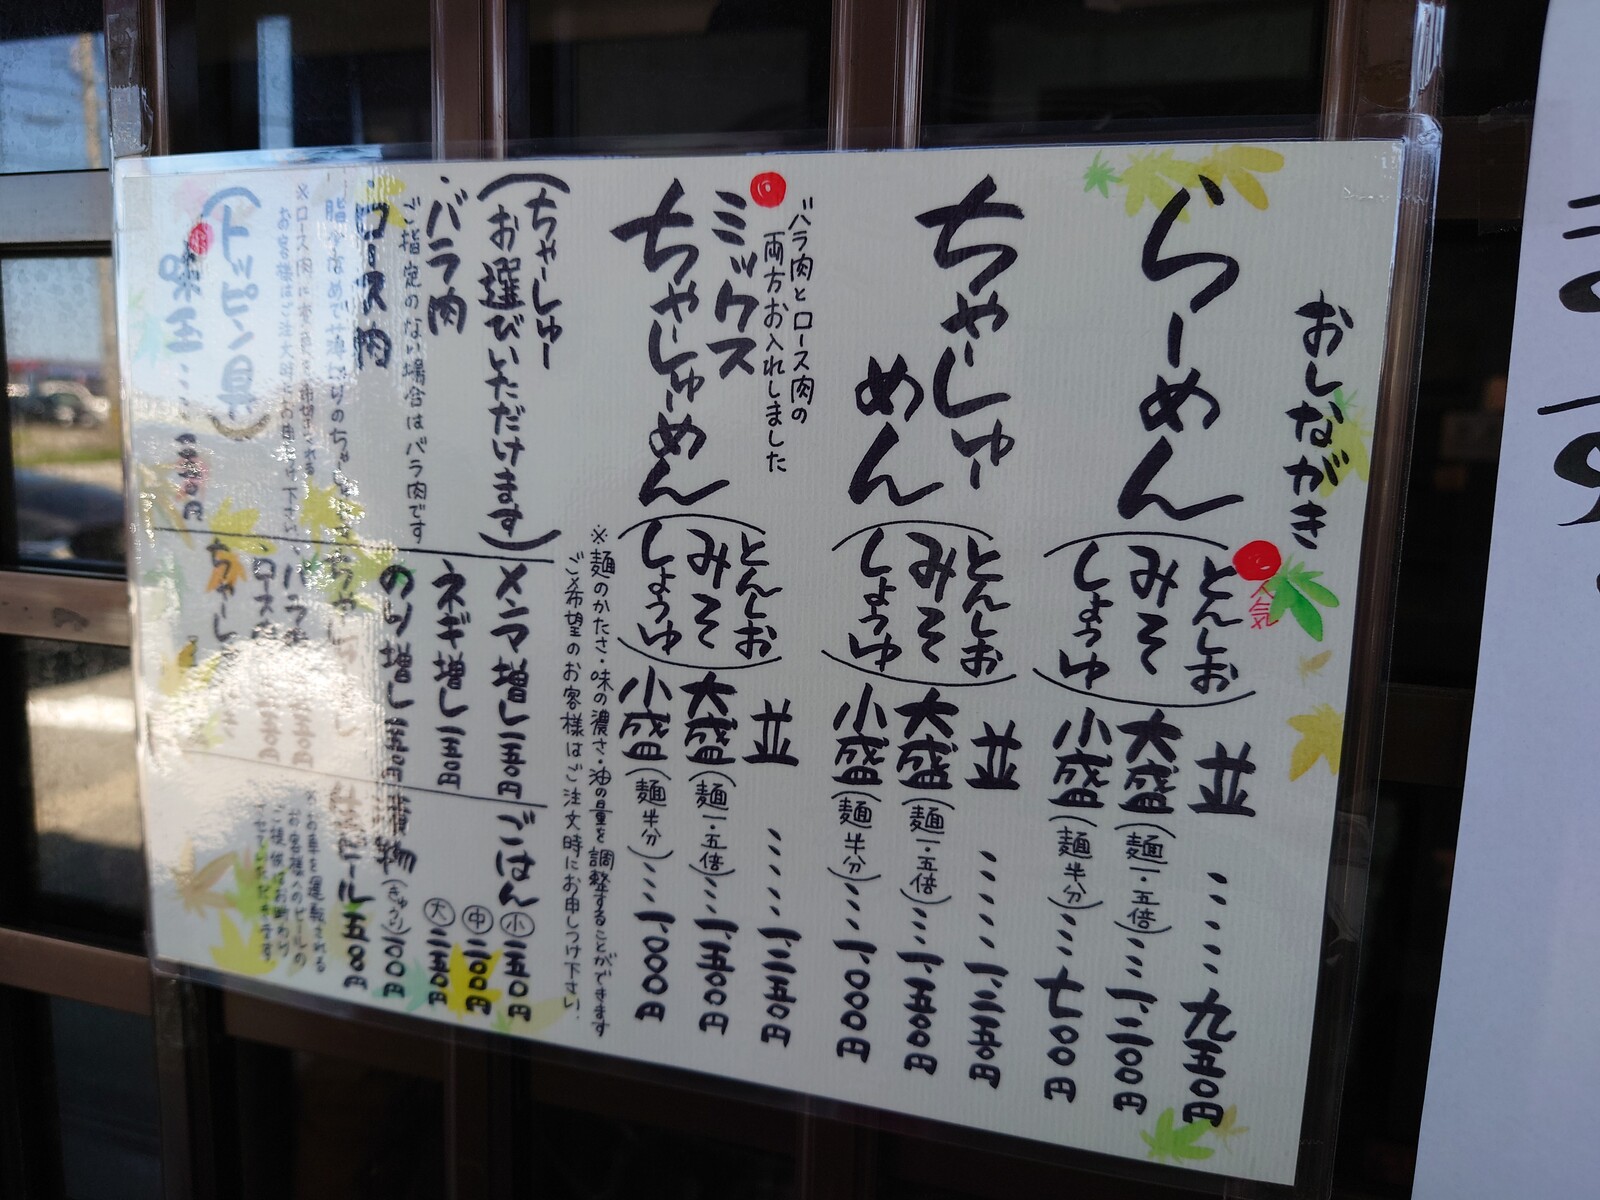 おしながき
らーめん
人気
とんしお
みそ
しょうゆ
並……九五〇円
大盛(麺一・五倍)…一、二〇〇円
小盛(麺半分)…七〇〇円
ちゃーしゅー
めん
とんしお
みそ
しょうゆ
並……一、三五〇円
大盛(麺一・五倍)…一、五〇〇円
小盛(麺半分)…一、〇〇〇円
バラ肉とロース肉の
両方お入れしました
ミックス
ちゃーしゅーめん
とんしお
みそ
しょうゆ
並……一、三五〇円
大盛(麺一・五倍)…一、五〇〇円
小盛(麺半分)…一、〇〇〇円
※麺のかたさ・味の濃さ・油の量を調整することができます
ご希望のお客様はご注文時にお申しつけ下さい。
(ちゃーしゅー
お選びいただけます)
・バラ肉
ご指定のない場合はバラ肉です
・ロース肉
(トッピング)
味玉
メンマ増し一五〇円
ネギ増し一五〇円
のり増し一五〇円
ごはん
小一五〇円
中二〇〇円
大二五〇円
漬物(きゅうり)一〇〇円
ビール五〇〇円
※お車を運転される
お客様へのビールの
ご提供はお断わり
させていただきます
ます